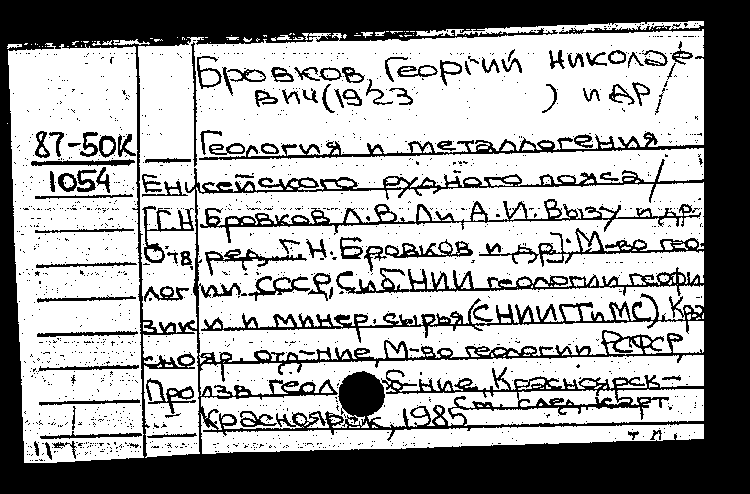 Бровков, Георгий Николае-
вич (1923 ) и др
87-50К Геология и металлогения
1054 Енисейского рудного пояса /
[Г.Н. Бровков, Л.В. Ли, А.И. Вызу и др.
Отв. ред. Г.Н. Бровков и др]; М-во гео-
логии СССР, Сиб. НИИ геологии, геофи
зики и минер. сырья (СНИИГГиМС). Кра
снояр. отд-ние, М-во геологии РСФСР,
Произв. геол. об-ние „Красноярск-
см. след. карт.
Красноярск, 1985
т. п.